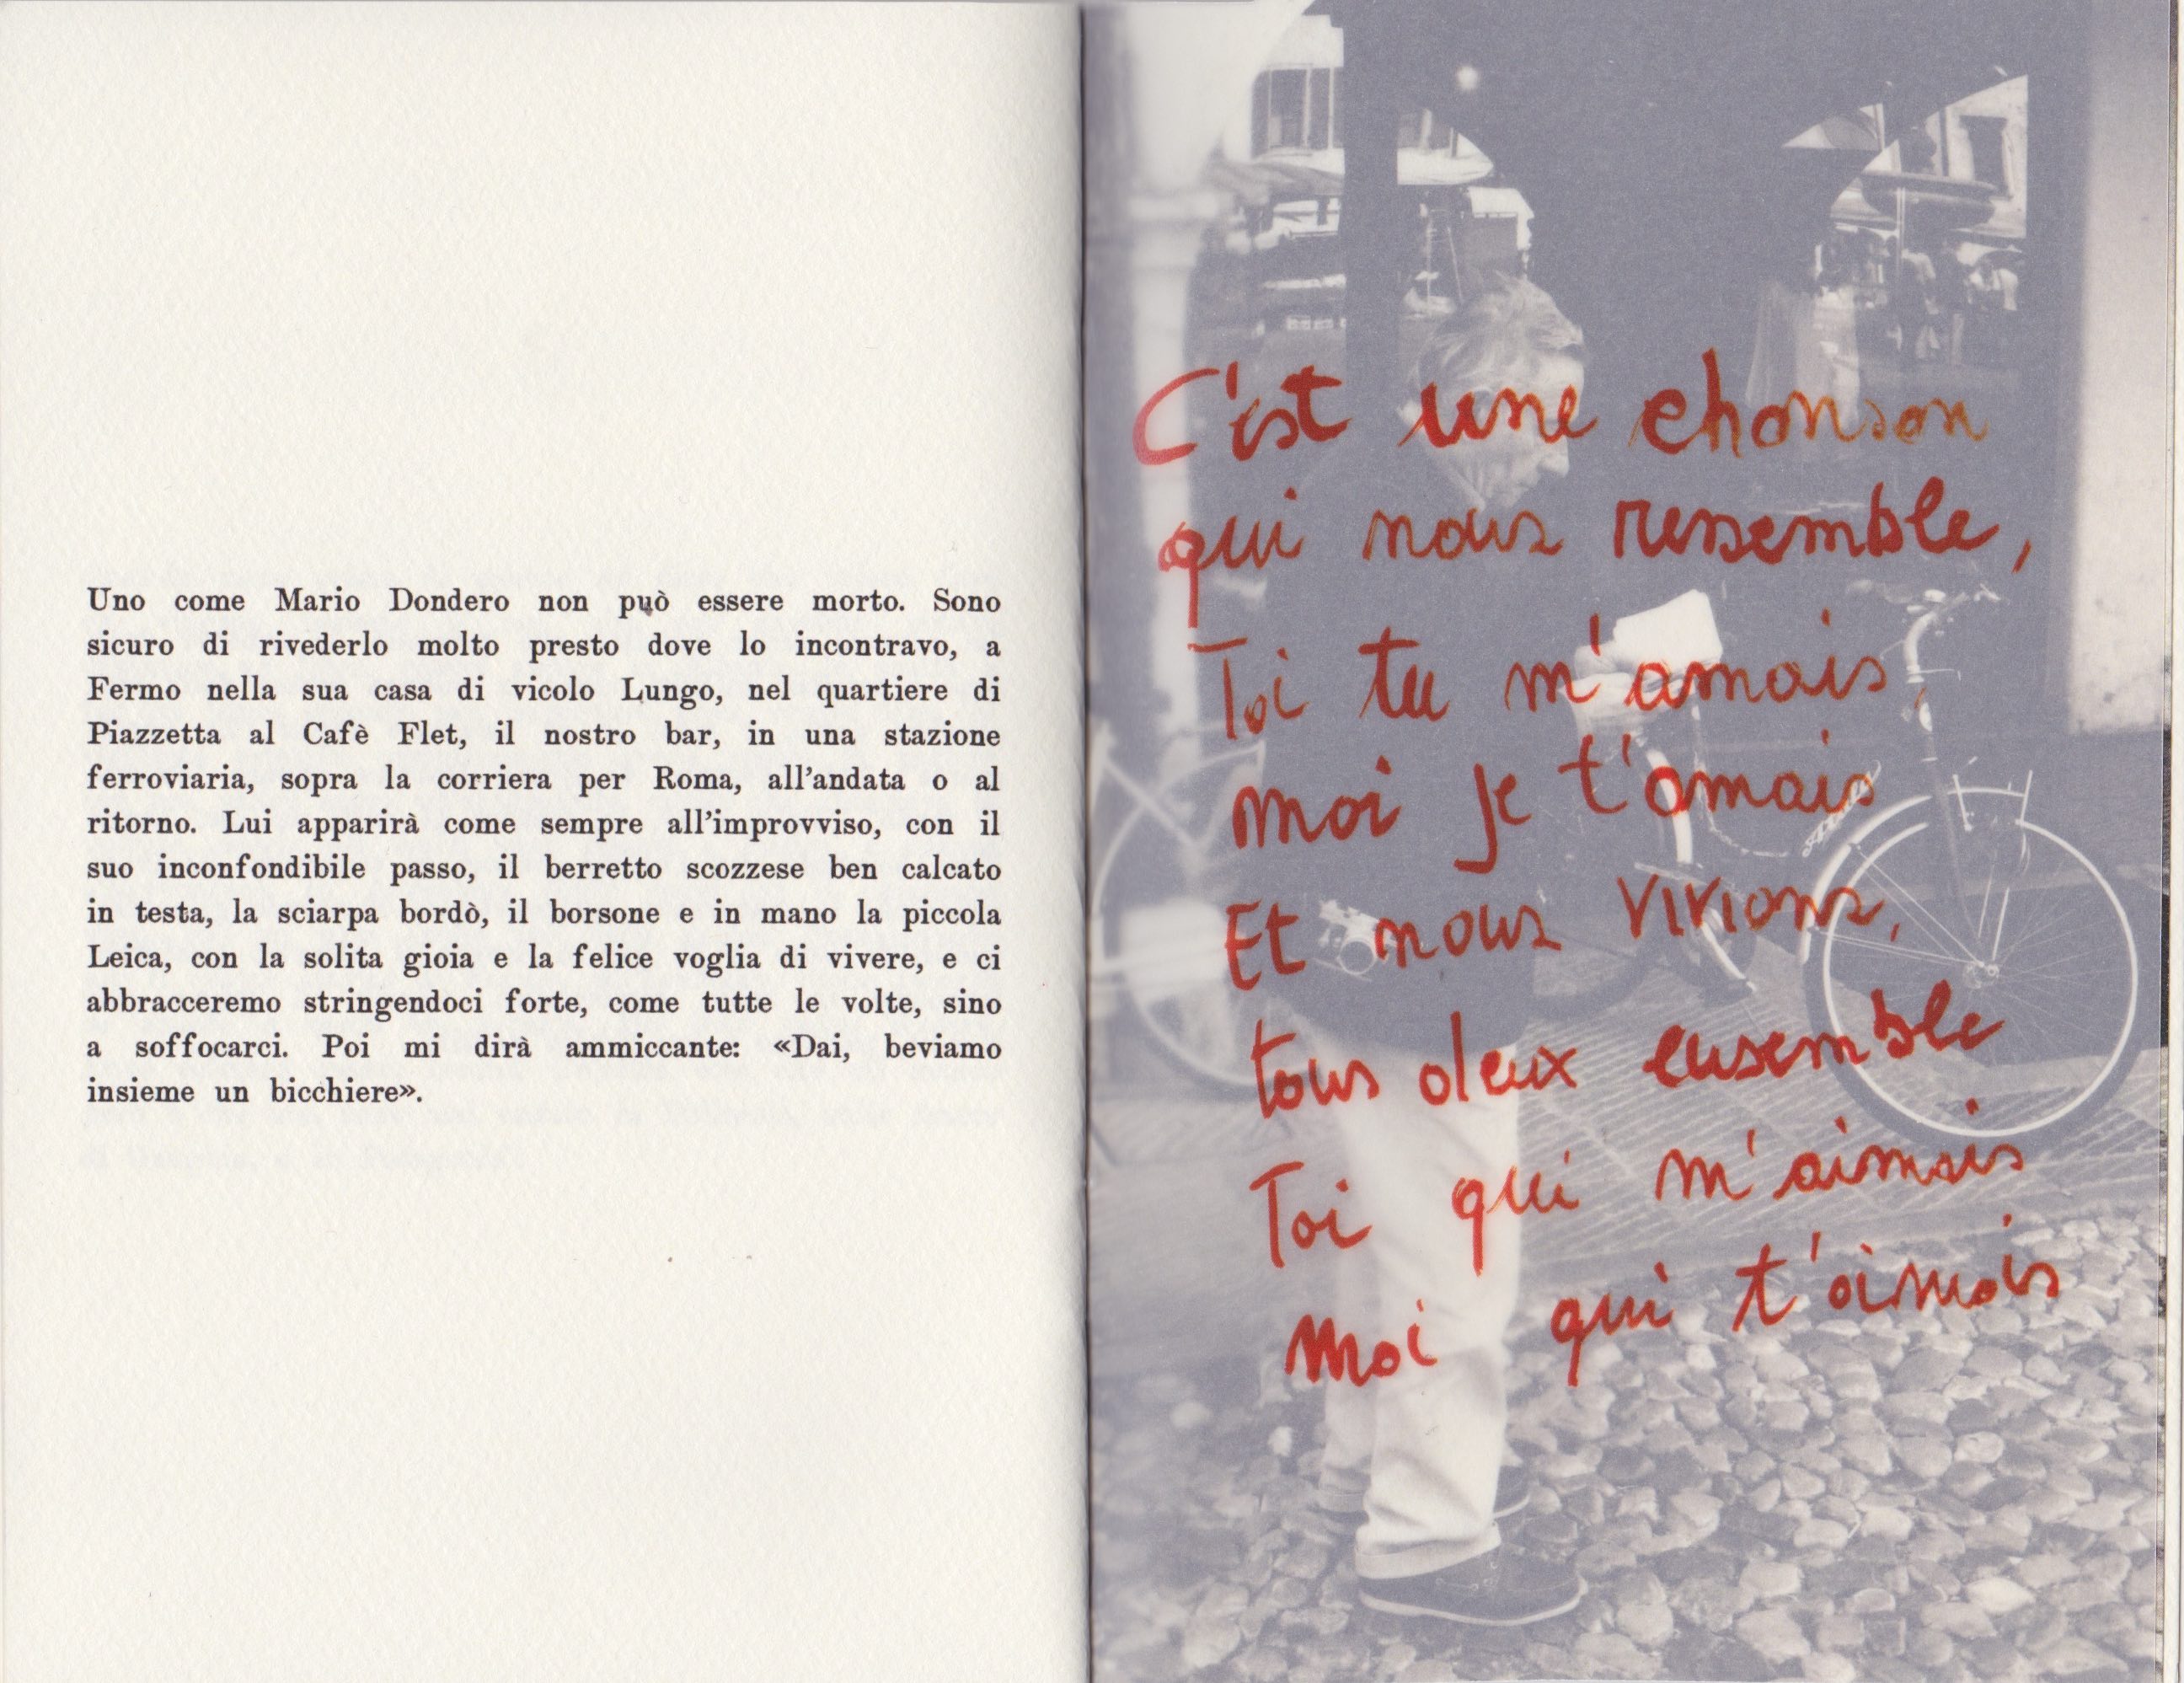 Uno come Mario Dondero non può essere morto. Sono
sicuro di rivederlo molto presto dove lo incontravo, a
Fermo nella sua casa di vicolo Lungo, nel quartiere di
Piazzetta al Cafè Flet, il nostro bar, in una stazione
ferroviaria, sopra la corriera per Roma, all'andata o al
ritorno. Lui apparirà come sempre all'improvviso, con il
suo inconfondibile passo, il berretto scozzese ben calcato
in testa, la sciarpa bordò, il borsone e in mano la piccola
Leica, con la solita gioia e la felice voglia di vivere, e ci
abbracceremo stringendoci forte, come tutte le volte, sino
a soffocarci. Poi mi dirà ammiccante: «Dai, beviamo
insieme un bicchiere».
C'est une chanson
qui nous ressemble,
Toi tu m'amais,
moi je t'amais
Et nous vivions,
tous deux ensemble
Toi qui m'aimais
moi qui t'aimais